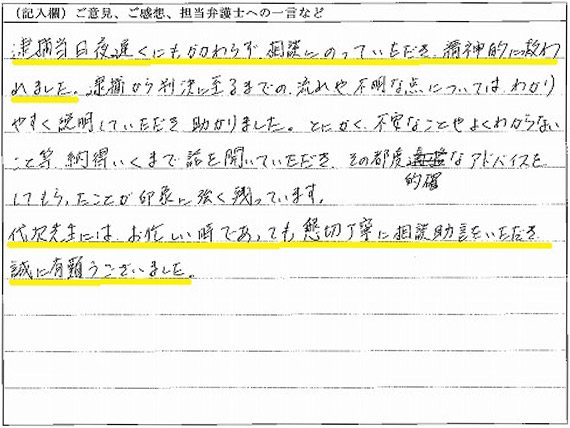 （記入欄）ご意見、ご感想、担当弁護士への一言など
逮捕当日夜遅くにもかかわらず、相談にのっていただき、精神的に救わ
れました。逮捕から判決に至るまでの、流れや不明な点については、わかり
やすく説明していただき助かりました。とにかく、不安なことやよくわからない
こと等、納得いくまで話を聞いていただき、その都度なアドバイスを
的確
してもらったことが印象に強く残っています。
代次先生には、お忙しい時であっても懇切丁寧に相談助言をいただき
誠に有難うございました。